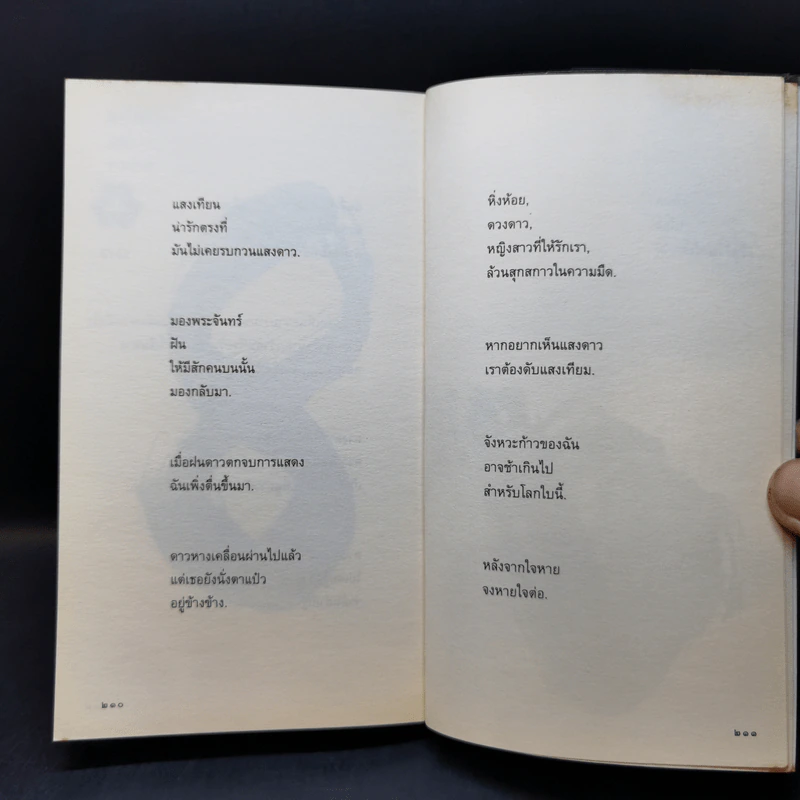 แสงเทียน
น่ารักตรงที่
มันไม่เคยรบกวนแสงดาว.
มองพระจันทร์
ฝัน
ให้มีสักคนบนนั้น
มองกลับมา.
เมื่อฝนดาวตกจบการแสดง
ฉันเพิ่งตื่นขึ้นมา.
ดาวหางเคลื่อนผ่านไปแล้ว
แต่เธอยังนั่งตาแป๋ว
อยู่ข้างข้าง.
๒๑๐
หิ่งห้อย,
ดวงดาว,
หญิงสาวที่ให้รักเรา,
ล้วนสุกสกาวในความมืด.
หากอยากเห็นแสงดาว
เราต้องดับแสงเทียม.
จังหวะก้าวของฉัน
อาจช้าเกินไป
สำหรับโลกใบนี้.
หลังจากใจหาย
จงหายใจต่อ.
๒๑๑